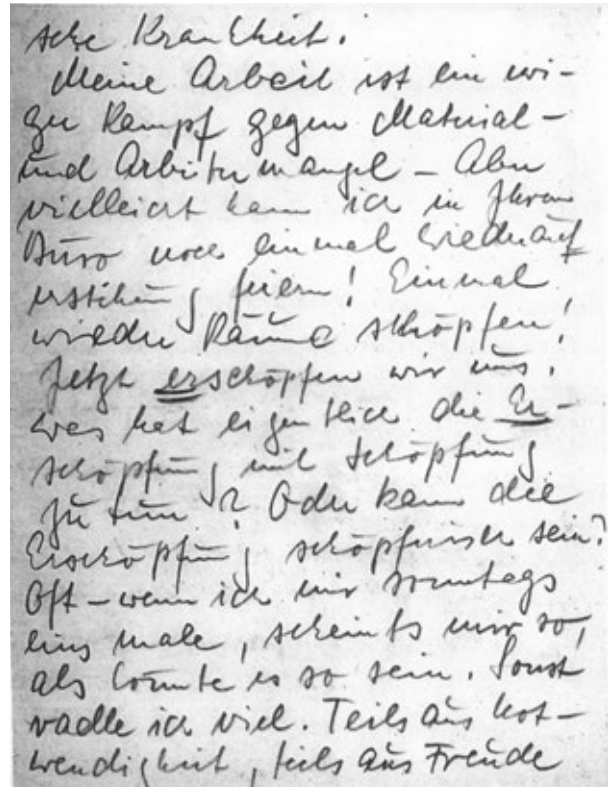 sche Krankheit.
Meine Arbeit ist ein ewi-
ger Kampf gegen Material-
und Arbeitermangel – Aber
vielleicht kann ich in Ihrem
Büro noch einmal Wiederauf
erstehung feiern! Einmal
wieder Räume schöpfen!
Jetzt erschöpfen wir uns.
Was hat eigentlich die Er-
schöpfung mit Schöpfung
zu tun? Oder kann die
Erschöpfung schöpferisch sein?
Oft – wenn ich mir sonntags
eins male, scheint's mir so,
als könnte es so sein. Sonst
radle ich viel. Teils aus Not-
wendigkeit, teils aus Freude